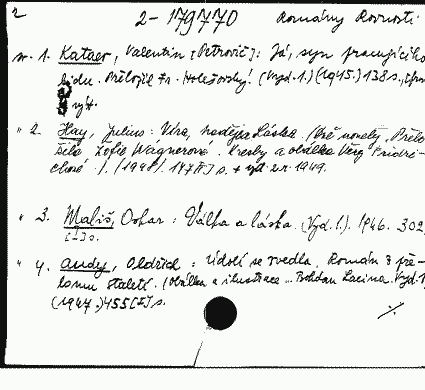 2 2-179770 Romány Rovnosti
sv. 1. Kataev, Valentin [Petrovič]: Já, syn pracujícího
lidu. Přeložil Fr. Holešovský. (Vyd. 1.) (1945.) 138 s.,
" 2. Hay, Julius: Víra, naděje láska. (Dvě novely. Přelo-
žila Žofie Wágnerová. Kresby a obálka Věry Fridri-
chové.) 1. (1948). 177 s. + vyd. 2. r. 1949.
" 3. Mališ, Oskar: Válka a láska. (Vyd. 1.). 1946. 302,
[1] s.
" 4. Audy, Oldřich: Údolí se zvedla. Román z pře-
lomu století. (Obálka a ilustrace ... Bohdan Lacina. Vyd. 1.)
(1947.) 455 [1] s.